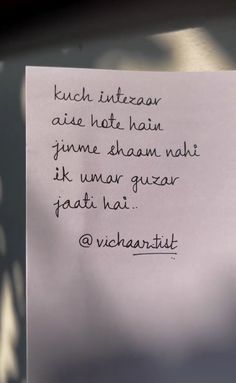 kuch intezaar
aise hote hain
jinme shaam nahi
ik umar guzar
jaati hai..
@vichaartist